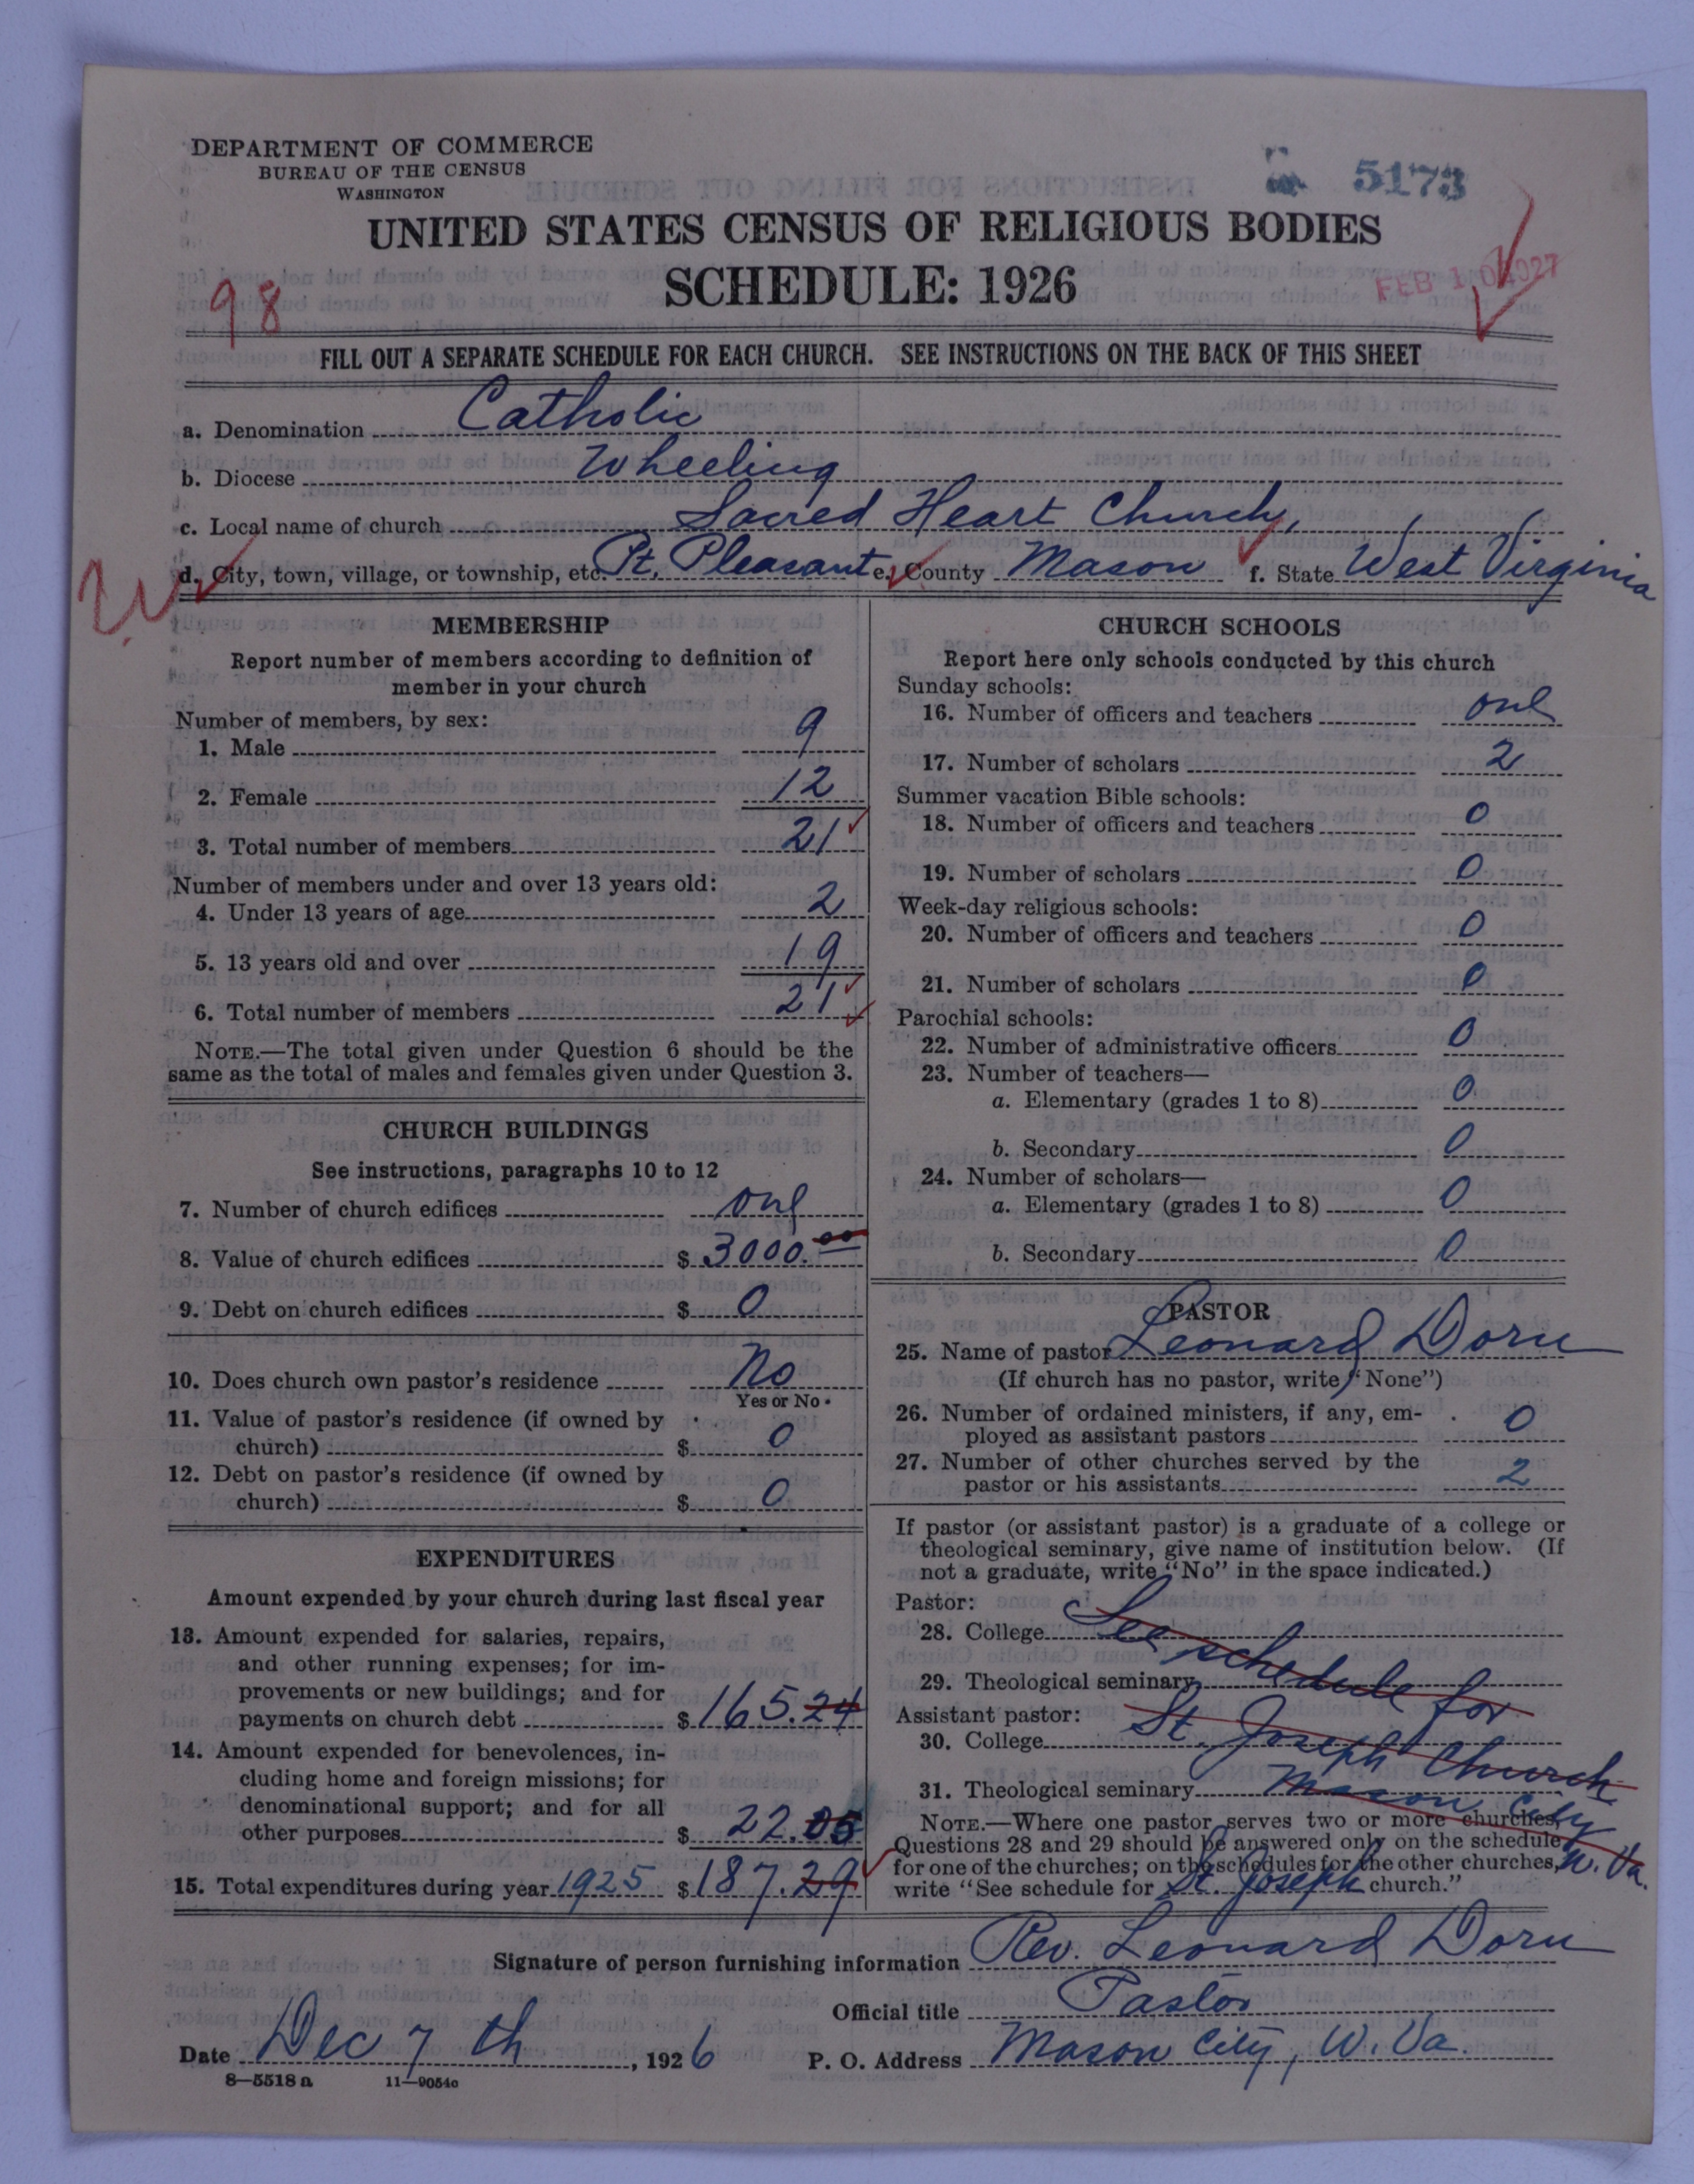 DEPARTMENT OF COMMERCE
BUREAU OF THE CENSUS
WASHINGTON
5173
UNITED STATES CENSUS OF RELIGIOUS BODIES
SCHEDULE: 1926
98
FEB 10 1927
FILL OUT A SEPARATE SCHEDULE FOR EACH CHURCH. SEE INSTRUCTIONS ON THE BACK OF THIS SHEET
a. Denomination Catholic
b. Diocese Wheeling
c. Local name of church Sacred Heart Church,
d. City, town, village, or township, etc. Pt. Pleasant e. County Mason f. State West Virginia
MEMBERSHIP
Report number of members according to definition of
member in your church
Number of members, by sex:
1. Male 9
2. Female 12
3. Total number of members 21
Number of members under and over 13 years old:
4. Under 13 years of age 2
5. 13 years old and over 19
6. Total number of members 21
NOTE.—The total given under Question 6 should be the
same as the total of males and females given under Question 3.
CHURCH BUILDINGS
See instructions, paragraphs 10 to 12
7. Number of church edifices one
8. Value of church edifices $ 3000.00
9. Debt on church edifices $ 0
10. Does church own pastor's residence No
Yes or No
11. Value of pastor's residence (if owned by
church) $ 0
12. Debt on pastor's residence (if owned by
church) $ 0
EXPENDITURES
Amount expended by your church during last fiscal year
13. Amount expended for salaries, repairs,
and other running expenses; for im-
provements or new buildings; and for
payments on church debt $ 165.24
14. Amount expended for benevolences, in-
cluding home and foreign missions; for
denominational support; and for all
other purposes $ 22.05
15. Total expenditures during year 1925 $ 187.29
CHURCH SCHOOLS
Report here only schools conducted by this church
Sunday schools:
16. Number of officers and teachers one
17. Number of scholars 2
Summer vacation Bible schools:
18. Number of officers and teachers 0
19. Number of scholars 0
Week-day religious schools:
20. Number of officers and teachers 0
21. Number of scholars 0
Parochial schools:
22. Number of administrative officers 0
23. Number of teachers—
a. Elementary (grades 1 to 8) 0
b. Secondary 0
24. Number of scholars—
a. Elementary (grades 1 to 8) 0
b. Secondary 0
PASTOR
25. Name of pastor Leonard Dorn
(If church has no pastor, write "None")
26. Number of ordained ministers, if any, em-
ployed as assistant pastors 0
27. Number of other churches served by the
pastor or his assistants 2
If pastor (or assistant pastor) is a graduate of a college or
theological seminary, give name of institution below. (If
not a graduate, write "No" in the space indicated.)
Pastor:
28. College See
29. Theological seminary schedule for
Assistant pastor:
30. College St. Joseph Church
31. Theological seminary Mason City
W. Va.
NOTE.—Where one pastor serves two or more churches,
Questions 28 and 29 should be answered only on the schedule
for one of the churches; on the schedules for the other churches,
write "See schedule for St. Joseph church."
Signature of person furnishing information Rev. Leonard Dorn
Official title Pastor
Date Dec 7th, 1926 P. O. Address Mason City, W. Va.
8—5518a 11—9054c